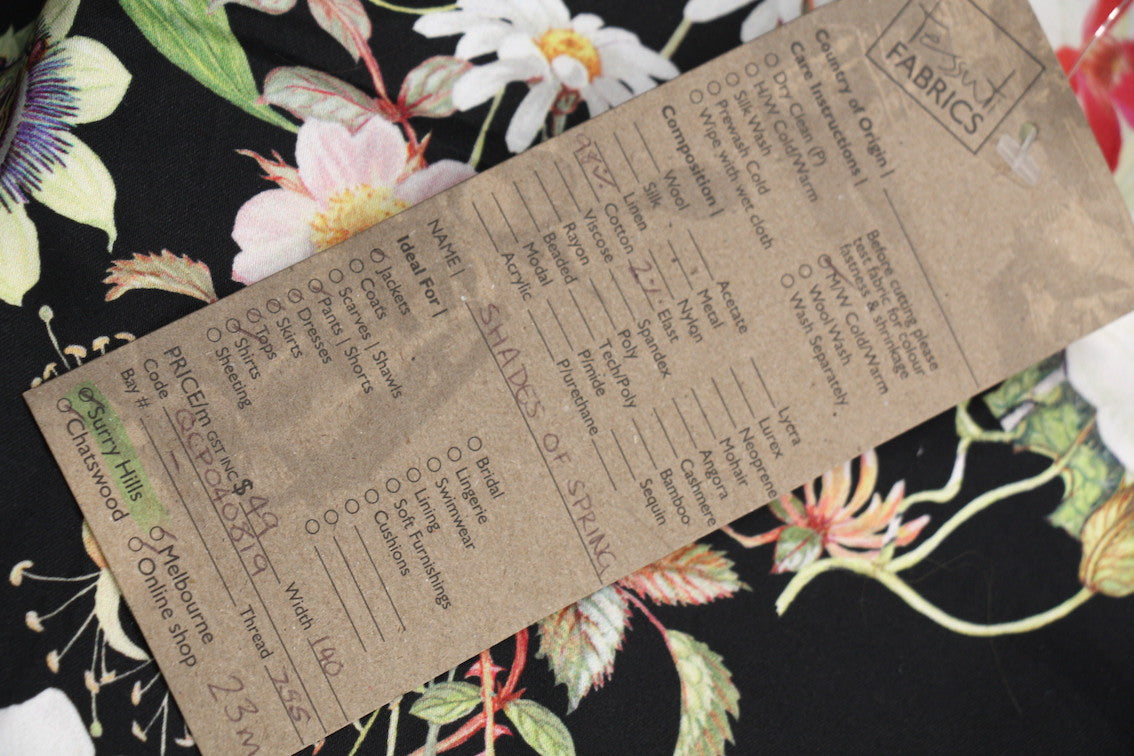 Tessuti
FABRICS
Country of Origin |
Care Instructions |
Dry Clean (P)
H/W Cold/Warm
Silk Wash
Prewash Cold
Wipe with wet cloth
Before cutting please
test fabric for colour
fastness & shrinkage
H/W Cold/Warm
Wool Wash
Wash Separately
Composition |
Wool
Silk
Linen
98% Cotton
Viscose
Rayon
Beaded
Modal
Acrylic
Acetate
Metal
Nylon
2% Elast
Spandex
Poly
Tech/Poly
P/mide
P/urethane
Lycra
Lurex
Neoprene
Mohair
Angora
Cashmere
Bamboo
Sequin
NAME | SHADES OF SPRING
Ideal For |
Jackets
Coats
Scarves | Shawls
Pants | Shorts
Dresses
Skirts
Tops
Shirts
Sheeting
Bridal
Lingerie
Swimwear
Lining
Soft Furnishings
Cushions
PRICE/m GST INC $ 49 Width 140
Code QCP040819 Thread 755
Bay #
Surry Hills
Chatswood
Melbourne
Online shop
23m